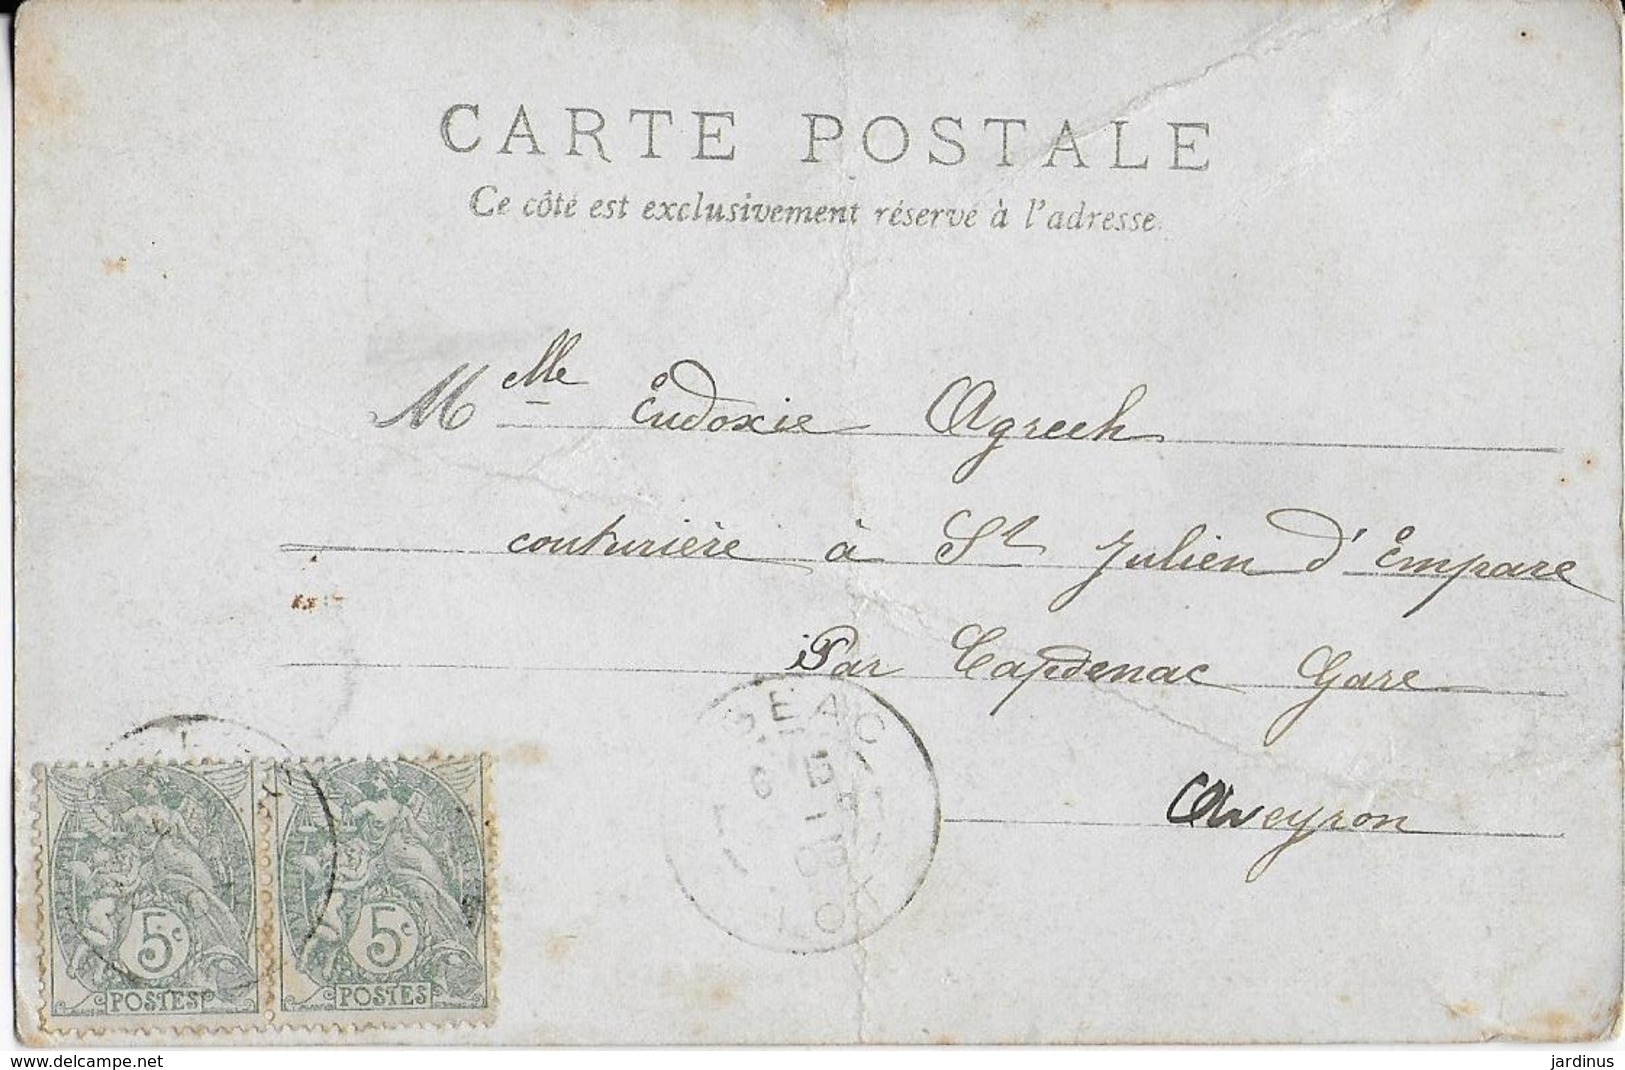 CARTE POSTALE
Ce côté est exclusivement réservé à l'adresse.
Melle Eudoxie Agrech
couturière à St Julien d'Empare
Par Capdenac Gare
Aveyron
5c 5c
POSTES POSTES
www.delcampe.net
jardinus